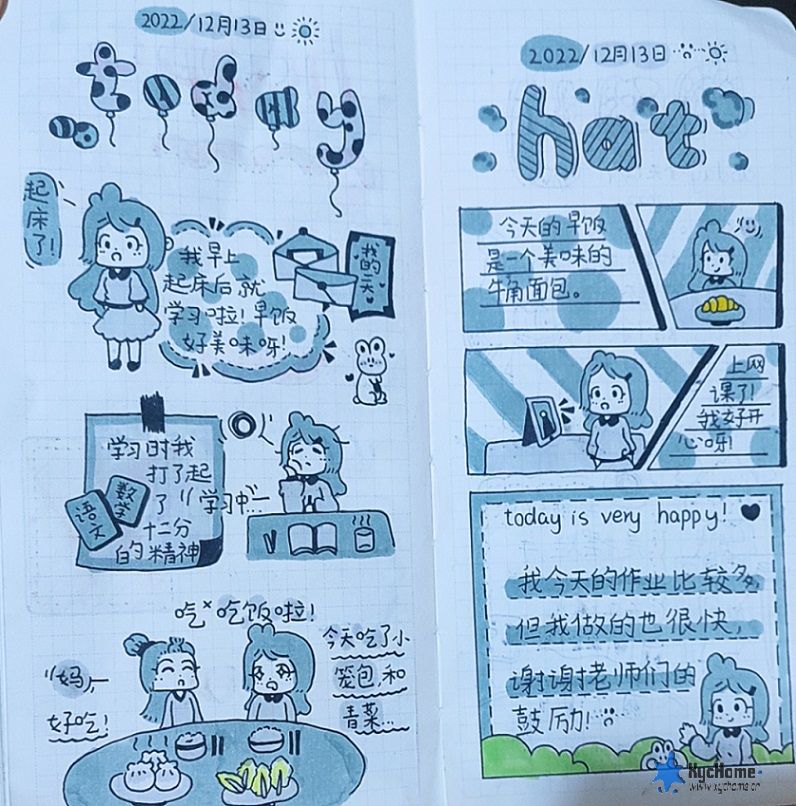 2022/12月13日
today
起
床
了!
我早上
起床后就
学习啦!早饭
好美味呀!
我
的
一
天
学习时我
打了起
了
十二分
的精神
数学
语文
"学习中…
吃×吃饭啦!
"妈,
好吃!
今天吃了小
笼包,和
青菜…
2022/12月13日
hat
今天的早饭
是一个美味的
牛角面包。
上网
课了!
我好开
心呀!
today is very happy!
我今天的作业比较多,
但我做的也很快,
谢谢老师们的
鼓厉!
XycHome
www.xychome.cn